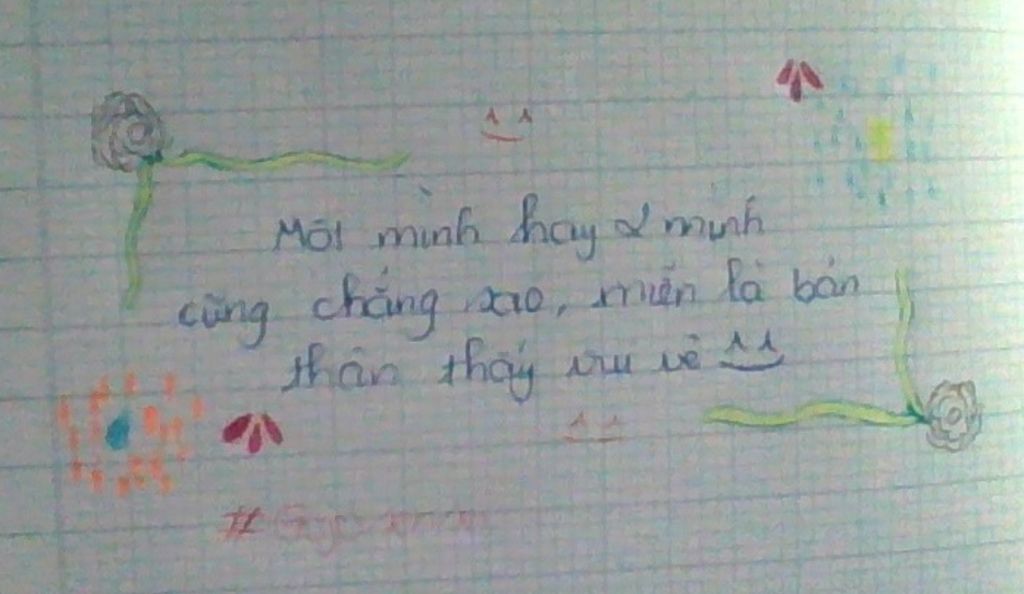 Một mình hay 2 mình
cũng chẳng sao, miễn là bản
thân thấy vui vẻ ^^